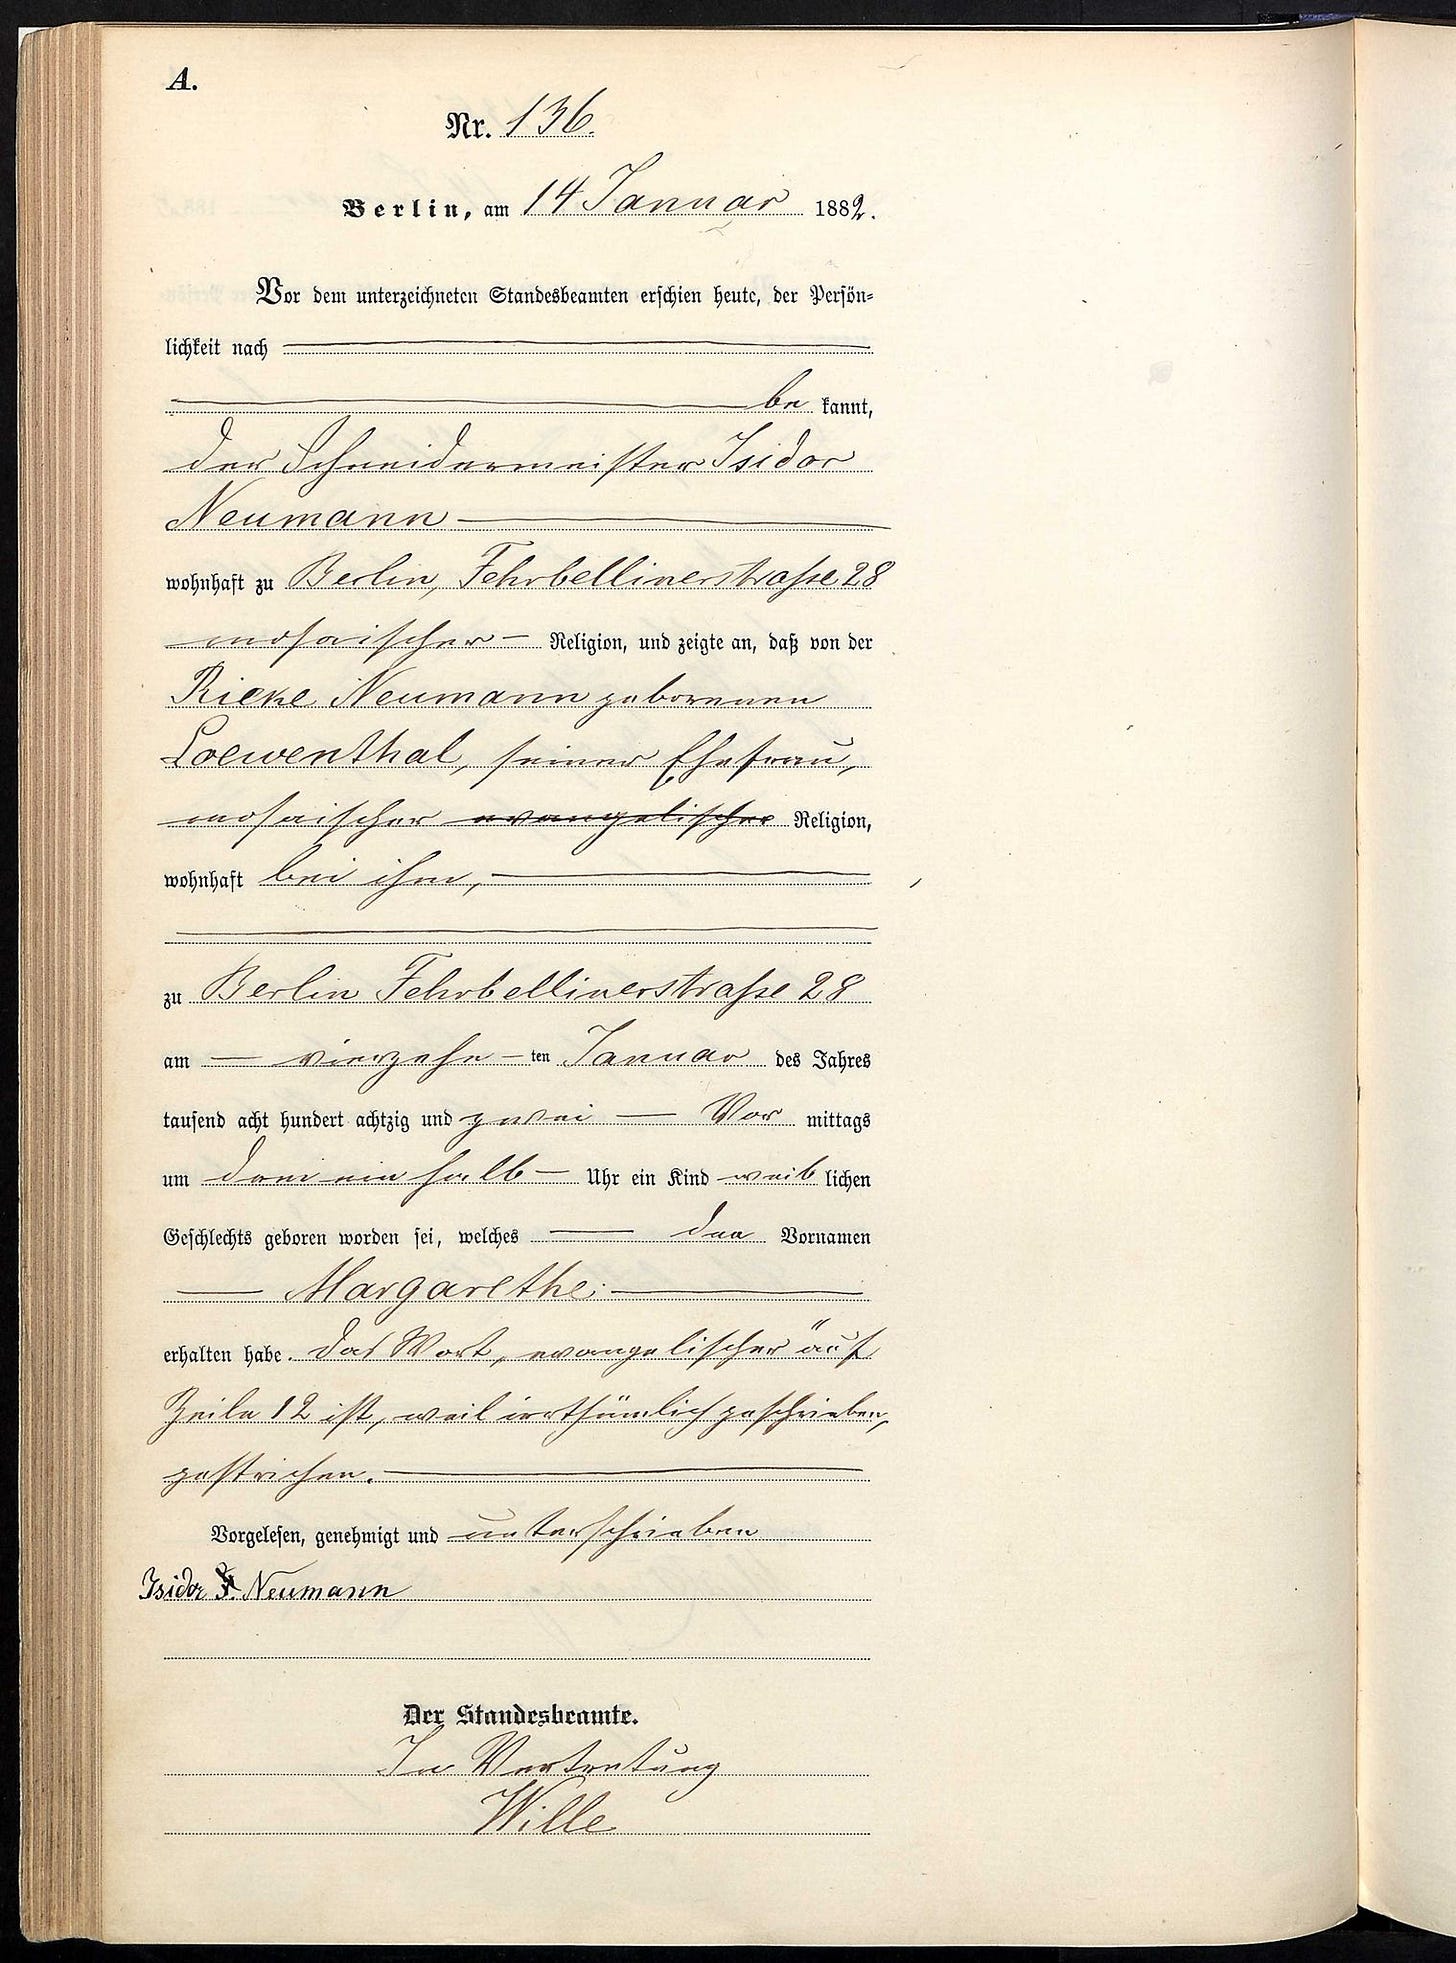 A.
Nr. 136.
Berlin, am 14 Januar 1882.
Vor dem unterzeichneten Standesbeamten erschien heute, der Persön-
lichkeit nach
be kannt,
der Schneidermeister Isidor
Neumann
wohnhaft zu Berlin, Fehrbellinerstraße 28
mosaischer Religion, und zeigte an, daß von der
Rieke Neumann geborenen
Loewenthal, seiner Ehefrau,
mosaischer evangelischer Religion,
wohnhaft bei ihm,
zu Berlin Fehrbellinerstraße 28
am vierzehn ten Januar des Jahres
tausend acht hundert achtzig und zwei Vor mittags
um drei ein halb Uhr ein Kind weib lichen
Geschlechts geboren worden sei, welches den Vornamen
Margarethe
erhalten habe. Das Wort „evangelischer" auf
Zeile 12 ist, weil irrthümlich geschrieben,
gestrichen.
Vorgelesen, genehmigt und unterschrieben
Isidor Neumann
Der Standesbeamte.
In Vertretung
Wille